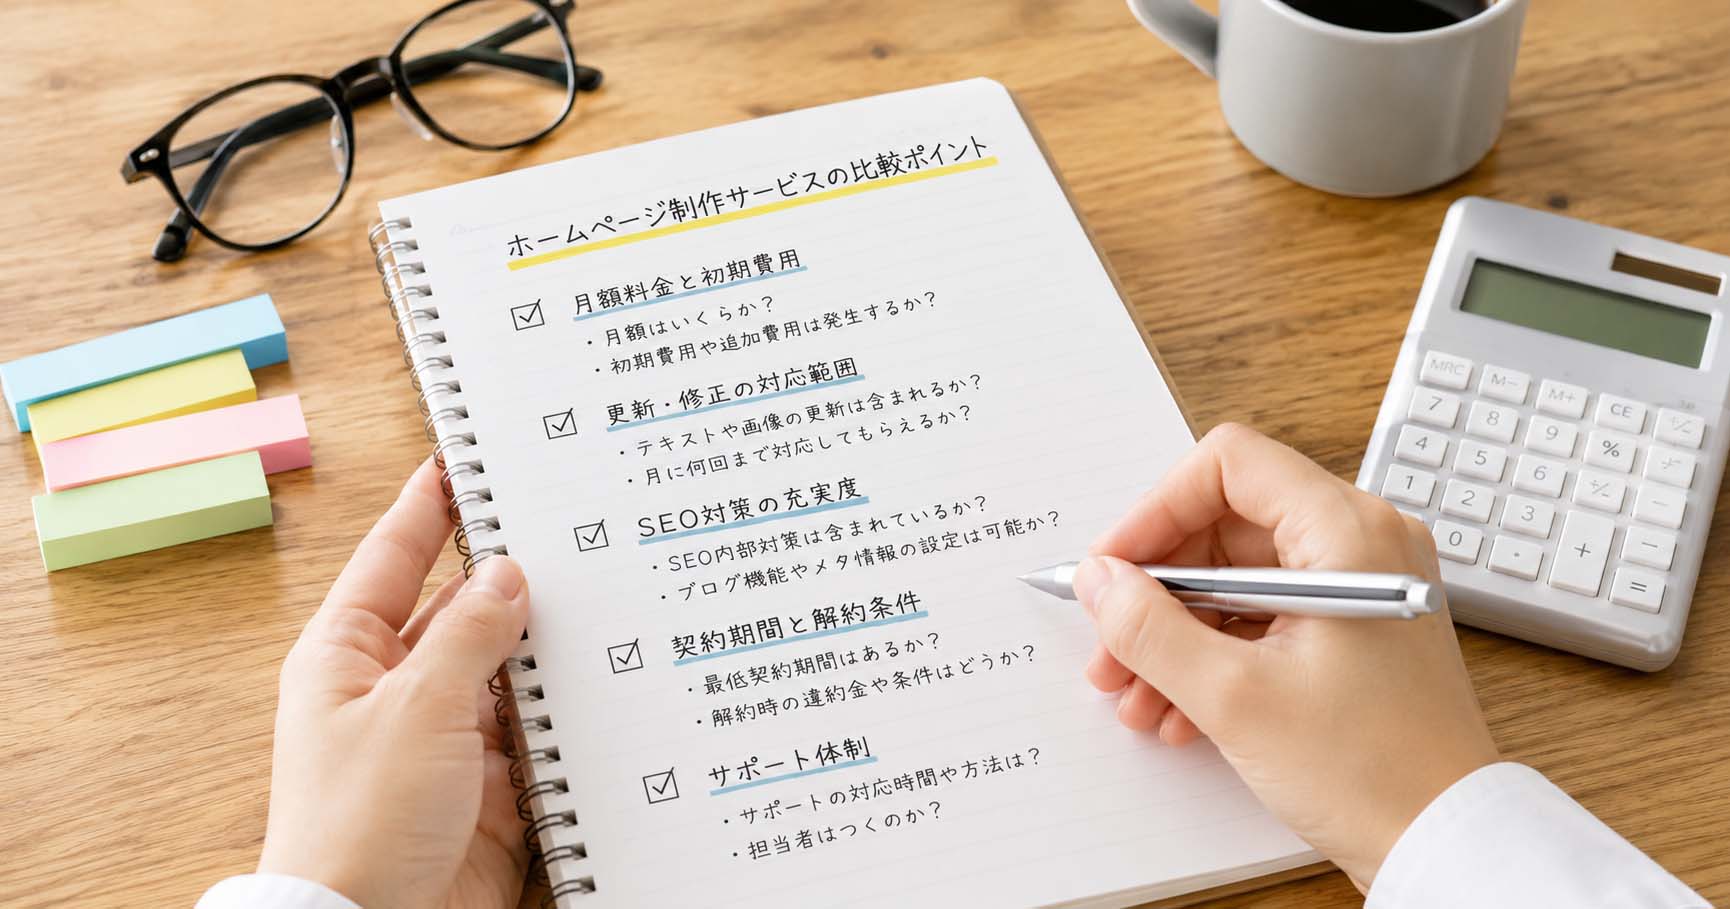 ホームページ制作サービスの比較ポイント
月額料金と初期費用
・月額はいくらか？
・初期費用や追加費用は発生するか？
更新・修正の対応範囲
・テキストや画像の更新は含まれるか？
・月に何回まで対応してもらえるか？
SEO対策の充実度
・SEO内部対策は含まれているか？
・ブログ機能やメタ情報の設定は可能か？
契約期間と解約条件
・最低契約期間はあるか？
・解約時の違約金や条件はどうか？
サポート体制
・サポートの対応時間や方法は？
・担当者はつくのか？
MRC M− M+ CE
7 8 9 %
4 5 6
1 2 3 −
0 . + −
=